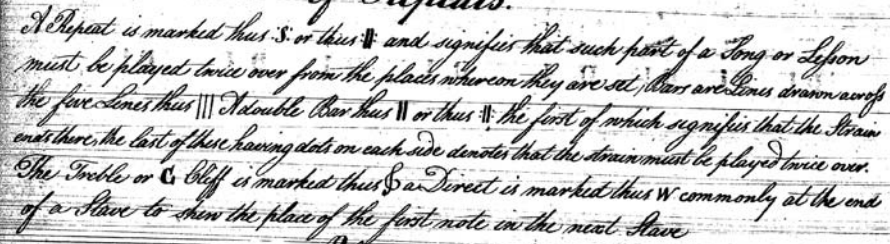 of
A Repeat is marked thus :S: or thus :||: and signifies that such part of a Song or Leſson
must be played twice over from the places whereon they are set, Bars are Lines drawn acroſs
the five Lines thus ||| A double Bar thus || or thus :||: the first of which signifies that the Strain
ends there, the last of these having dots on each side denotes that the strain must be played twice over.
The Treble or G Cliff is marked thus 𝄞 a Direct is marked thus W commonly at the end
of a Stave to shew the place of the first note in the next Stave